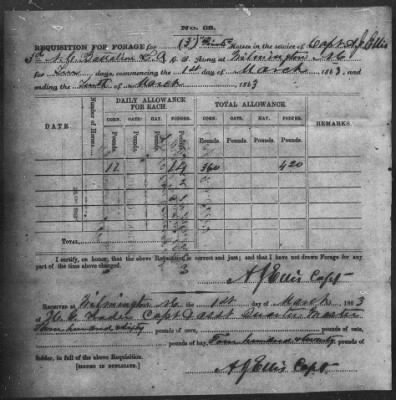 No. 33.
REQUISITION FOR FORAGE for (3) Horses in the service of Capt A J Ellis
N C Battalion C. S. Army at Wilmington N C
for Ten days, commencing the 1st day of March 1863, and
ending the Tenth of March, 1863
DATE.
Number of Horses.
DAILY ALLOWANCE FOR EACH.
TOTAL ALLOWANCE.
REMARKS.
CORN. OATS. HAY. FODDER. CORN. OATS. HAY. FODDER.
Pounds. Pounds. Pounds. Pounds. Pounds. Pounds. Pounds. Pounds.
12 14 360 420
TOTAL
I certify, on honor, that the above Requisition is correct and just; and that I have not drawn Forage for any
part of the time above charged.
A J Ellis Capt
RECEIVED AT Wilmington N C the 1st day of March 1863
of Capt & Asst Quarter Master
Three hundred & sixty pounds of corn, pounds of oats,
pounds of hay, Four hundred & twenty pounds of
fodder, in full of the above Requisition.
[SIGNED IN DUPLICATE.]
A J Ellis Capt